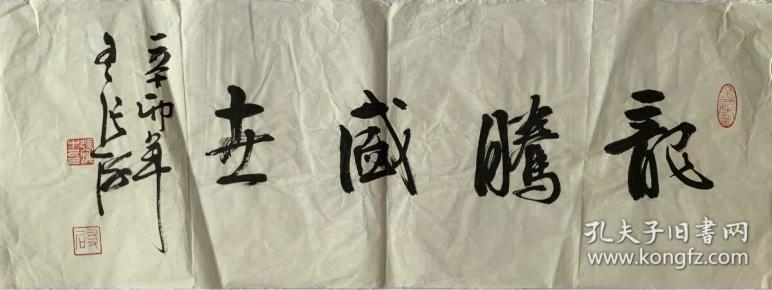 龍騰盛世
辛卯年
孔夫子旧书网
www.kongfz.com